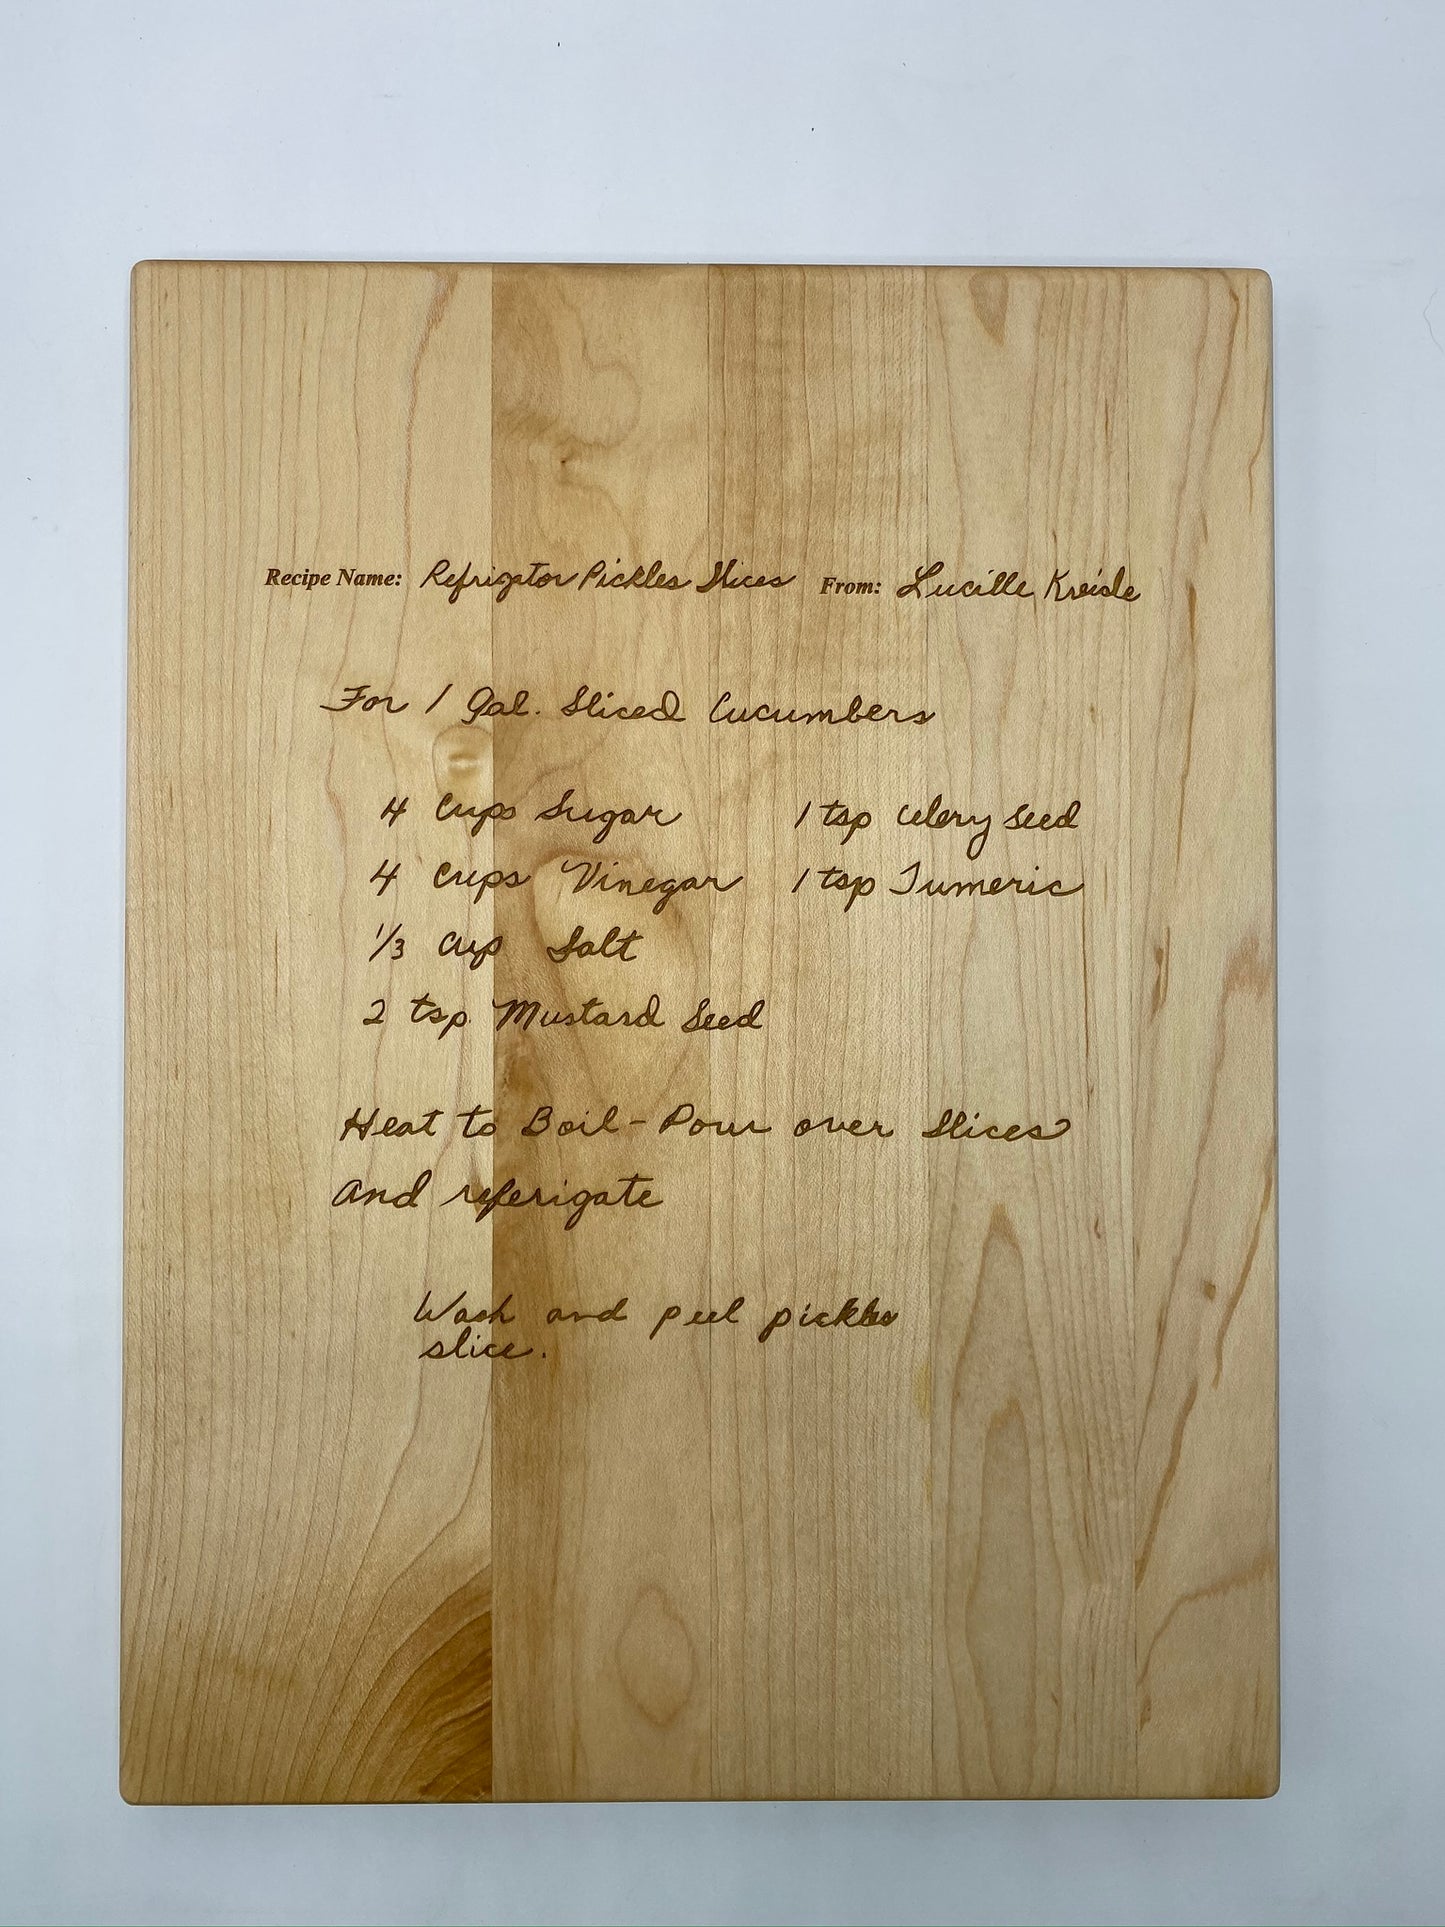 Recipe Name: Refrigator Pickles Slices From: Lucille Kreide
For 1 Gal. Sliced Cucumbers
4 Cups Sugar 1 tsp Celery Seed
4 Cups Vinegar 1 tsp Tumeric
1/3 Cup Salt
2 tsp. Mustard Seed
Heat to Boil - Pour over Slices
And referigate
Wash and peel pickles
slice.